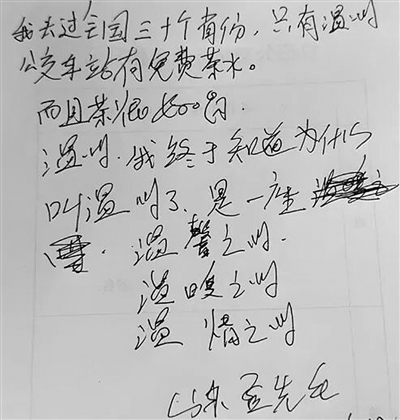 我去过全国三十个省份，只有温州
公交车站有免费茶水。
而且茶很好喝。
温州，我终于知道为什么
叫温州了，是一座
温馨之州
温暖之州
温情之州
山东 先生